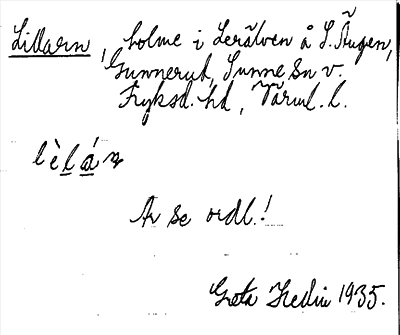 Lillarn, holme i Lerälven å S. Ängen,
Gunnerud, Sunne sn v.
Fryksd. hd, Värml. l.
lèlán
Ar se ordl.!
Greta Hedin 1935.